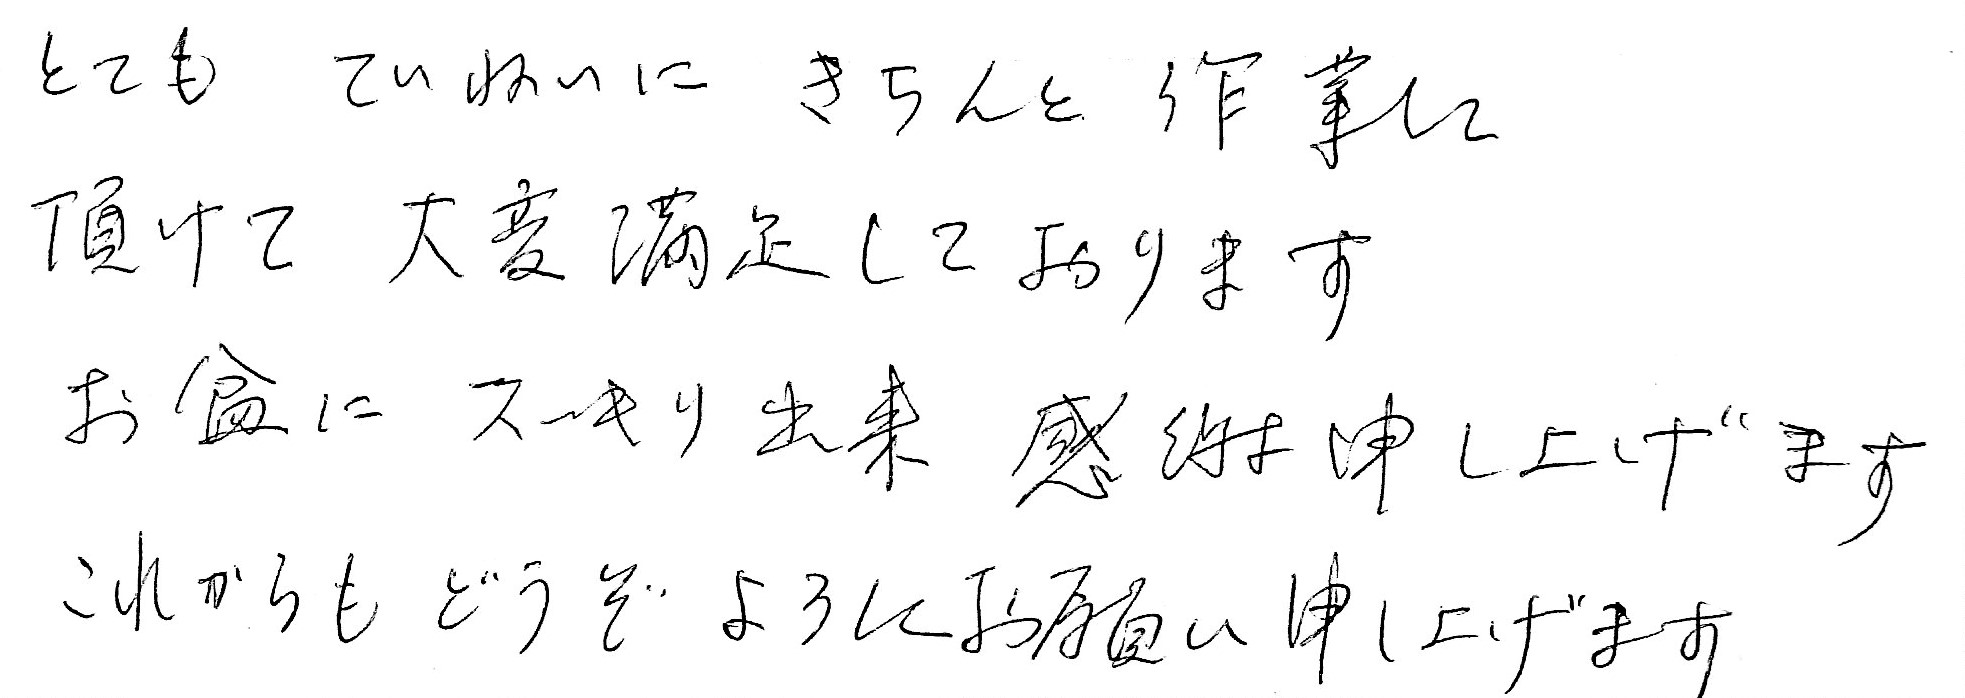 とても ていねいに きちんと 作業して
頂けて 大変満足しております
お盆に スッキリ出来 感謝申し上げます
これからも どうぞ よろしくお願い申し上げます